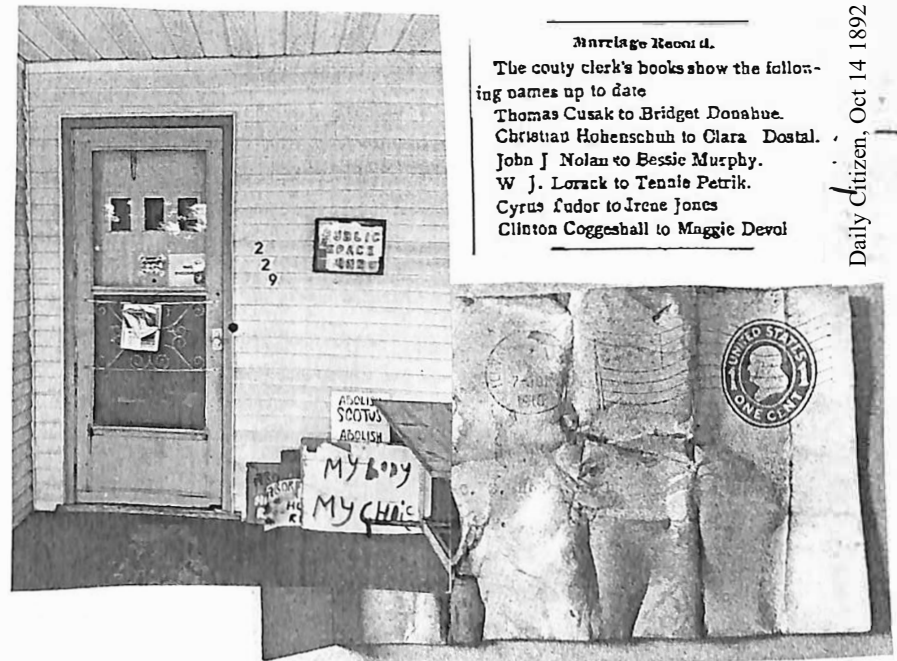 Marriage Record.
The couty clerk's books show the follow-
ing names up to date
Thomas Cusak to Bridget Donahue.
Christian Hohenschuh to Clara Dostal.
John J Nolan to Bessie Murphy.
W J. Lorack to Tennie Petrik.
Cyrus Tudor to Irene Jones
Clinton Coggeshall to Maggie Devol
Daily Citizen, Oct 14 1892
2
2
9
PUBLIC
SPACE
ABOLISH
SCOTUS
ABOLISH
MY BODY
MY CHOIC
1910
UNITED STATES
1 1
ONE CENT